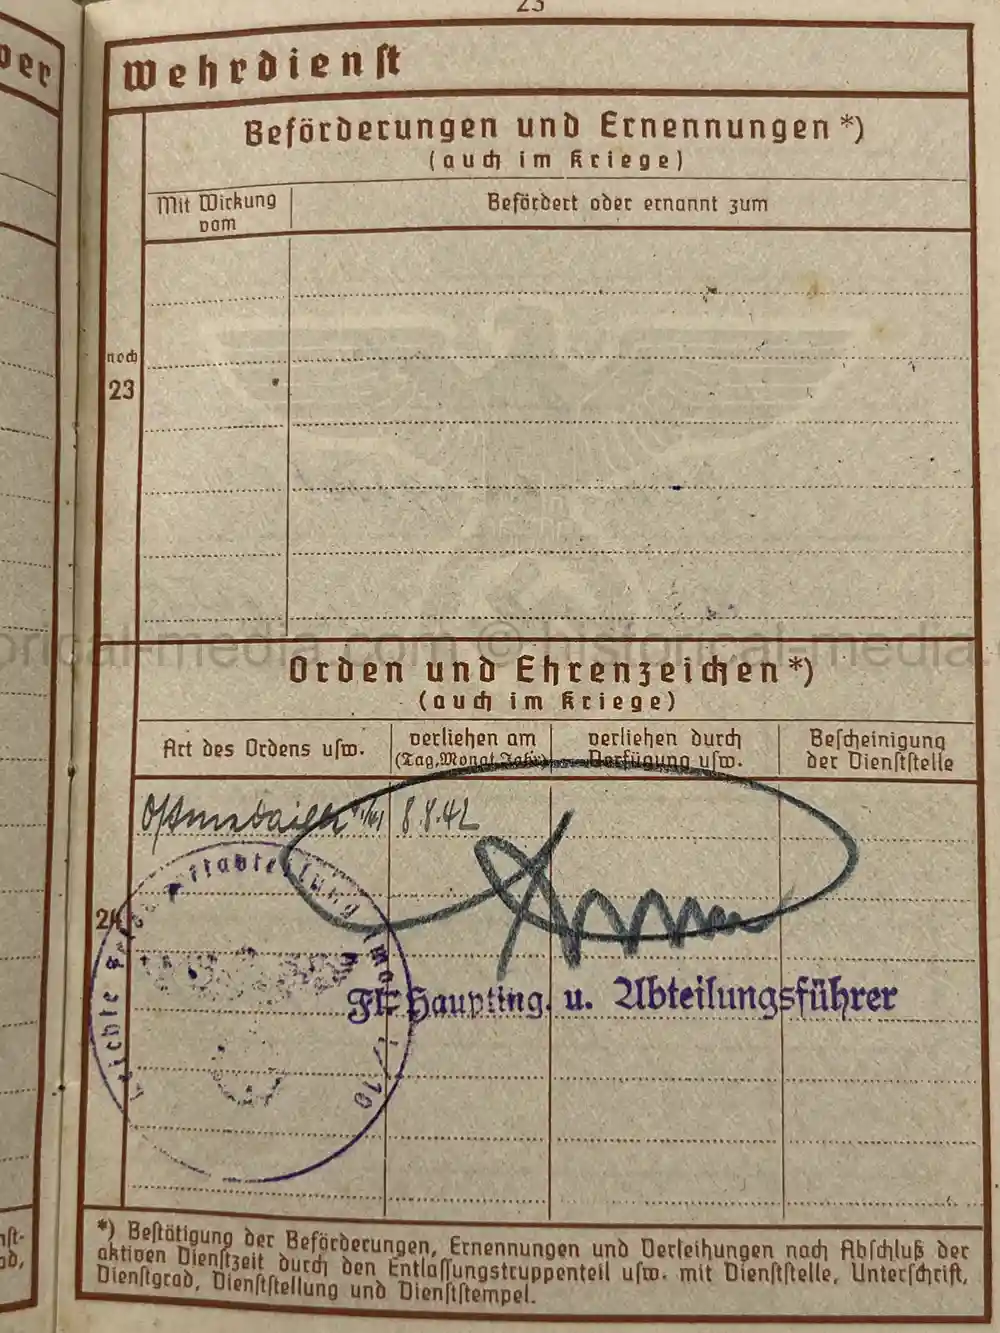 23
Wehrdienst
Beförderungen und Ernennungen *)
(auch im Kriege)
Mit Wirkung vom
Befördert oder ernannt zum
noch
23
historical-media.com © historical-media.
Orden und Ehrenzeichen *)
(auch im Kriege)
Art des Ordens usw.
verliehen am (Tag, Monat, Jahr)
verliehen durch Verfügung usw.
Bescheinigung der Dienststelle
Ostmedaille 8.8.42
24
Fl. Haupting. u. Abteilungsführer
*) Bestätigung der Beförderungen, Ernennungen und Verleihungen nach Abschluß der
aktiven Dienstzeit durch den Entlassungstruppenteil usw. mit Dienststelle, Unterschrift,
Dienstgrad, Dienststellung und Dienststempel.